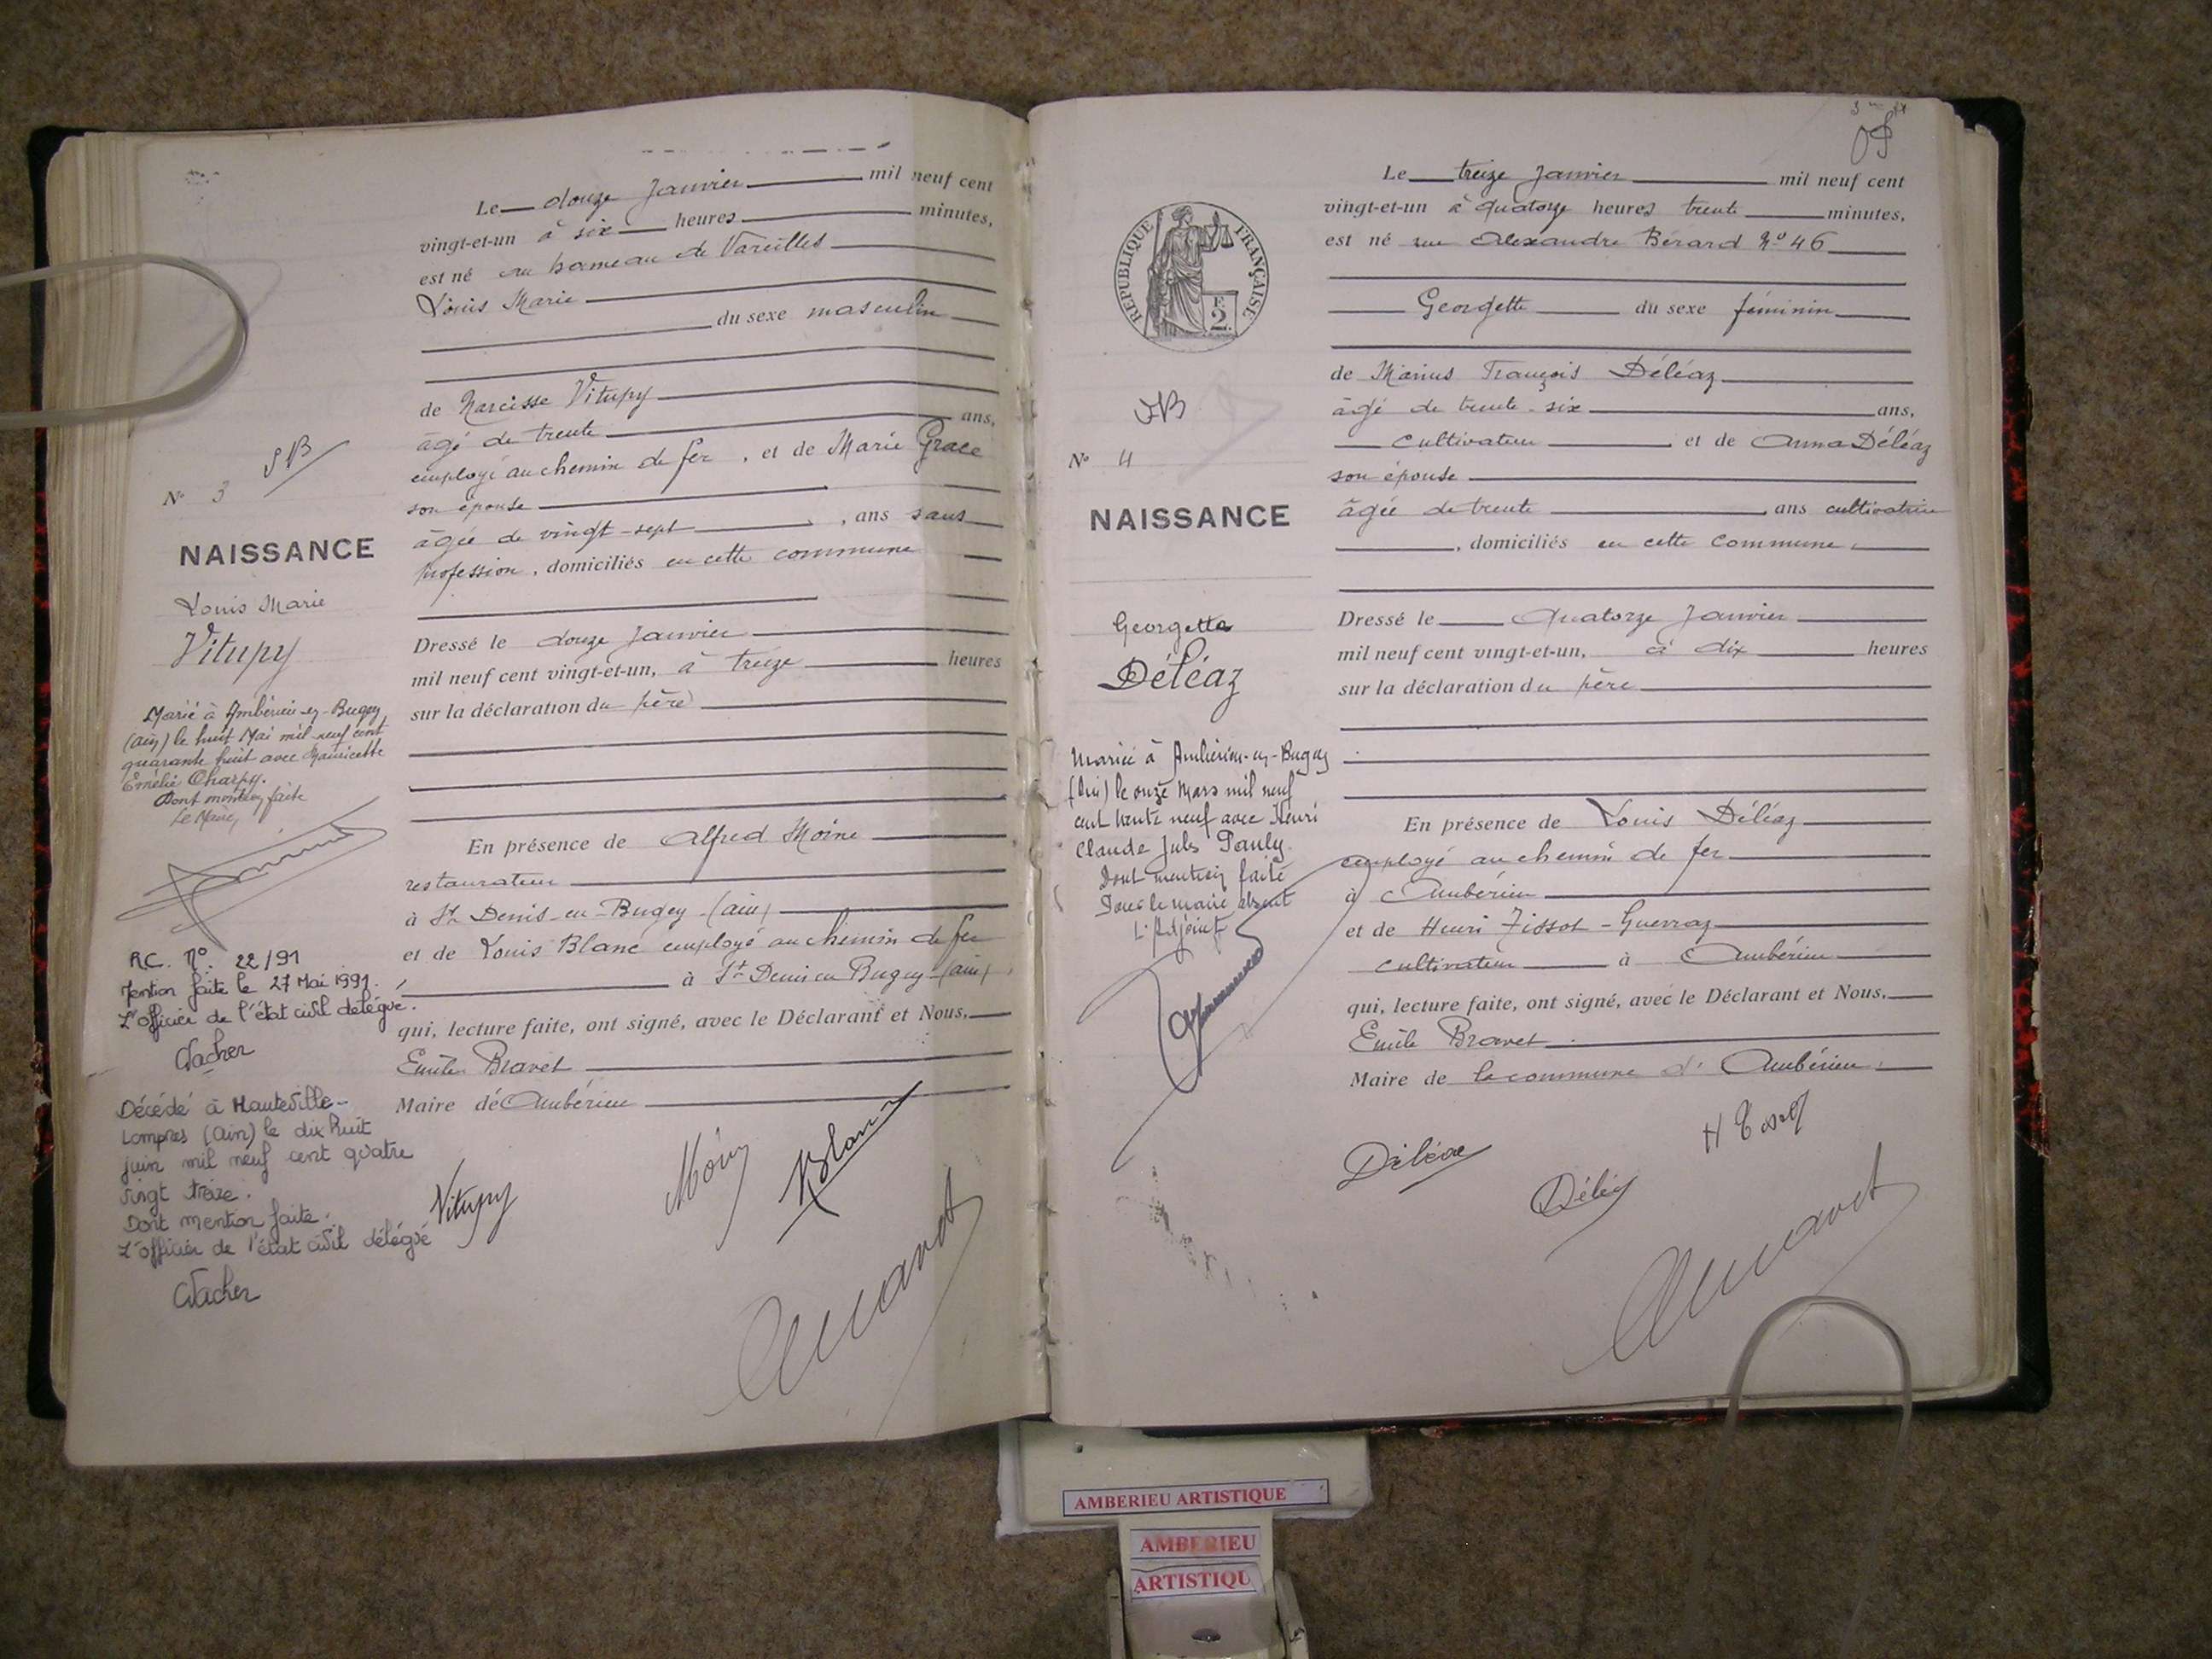 Le douze Janvier mil neuf cent
vingt-et-un à six heures minutes,
est né au hameau de Vareilles
Louis Marie
du sexe masculin
de Narcisse Vitupy
âgé de trente ans,
employé au chemin de fer, et de Marie Grace
son épouse
âgée de vingt-sept, ans sans
profession, domiciliés en cette commune
N° 3
NAISSANCE
Louis Marie
Vitupy
Dressé le douze Janvier
mil neuf cent vingt-et-un, à treize heures
sur la déclaration du père
Marié à Ambérieu-en-Bugey
(Ain) le huit Mai mil neuf cent
quarante huit avec Mauricette
Emélie Charpy.
Dont mention faite
Le Maire,
En présence de Alfred Moine
restaurateur
à St Denis-en-Bugey (ain)
et de Louis Blanc employé au chemin de fer
à St Denis en Bugey (ain)
qui, lecture faite, ont signé, avec le Déclarant et Nous,
Emile Bravet
Maire de Ambérieu
R.C. N°. 22/91
Mention faite le 27 Mai 1991.
L'officier de l'état civil délégué.
Décédé à Hauteville-
Lompnes (Ain) le dix huit
juin mil neuf cent quatre
vingt treize.
Dont mention faite.
L'officier de l'état civil délégué
Vitupy
Blanc
Le treize Janvier mil neuf cent
vingt-et-un à quatorze heures trente minutes,
est né rue Alexandre Bérard N° 46
Georgette du sexe féminin
de Marius François Déléaz
âgé de trente-six ans,
cultivateur et de Anna Déléaz
son épouse
âgée de trente ans cultivatrice
, domiciliés en cette commune.
RÉPUBLIQUE FRANÇAISE
F.
2
N° 4
NAISSANCE
Georgette
Déléaz
Dressé le Quatorze Janvier
mil neuf cent vingt-et-un, à dix heures
sur la déclaration du père
Mariée à Ambérieu-en-Bugey
(Ain) le onze Mars mil neuf
cent trente neuf avec Henri
Claude Jules Pauly.
Dont mention faite
Pour le maire absent
L'Adjoint
En présence de Louis Déléaz
employé au chemin de fer
à Ambérieu
et de Henri Tissot-Guerraz
cultivateur à Ambérieu
qui, lecture faite, ont signé, avec le Déclarant et Nous,
Emile Bravet
Maire de la commune d'Ambérieu.
Déléaz
AMBERIEU ARTISTIQUE
AMBERIEU
ARTISTIQU